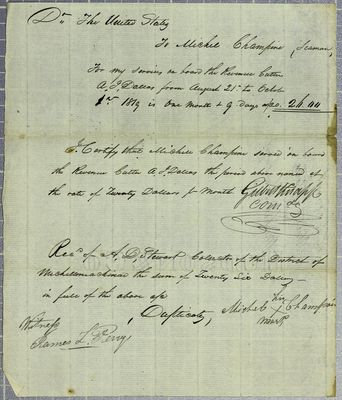 Dr The United States
To Michel Champine (Seaman)
For my services on board the Revenue Cutter
A. J. Dallas from August 21st to Octobr
1st 1819 is One Month & 9 days @20. 26.00
I Certify that Michell Champine served on board
the Revenue Cutter A. J. Dallas the period above named at
the rate of Twenty Dollars pr Month Gilbt Knapp
Com dg
Recd of A. D. Stewart Collector of the District of
Michilimackinac the sum of Twenty Six Dollars
in full of the above a/c
(Duplicate) Michel his X mark Champine
Witness
James L. Perry